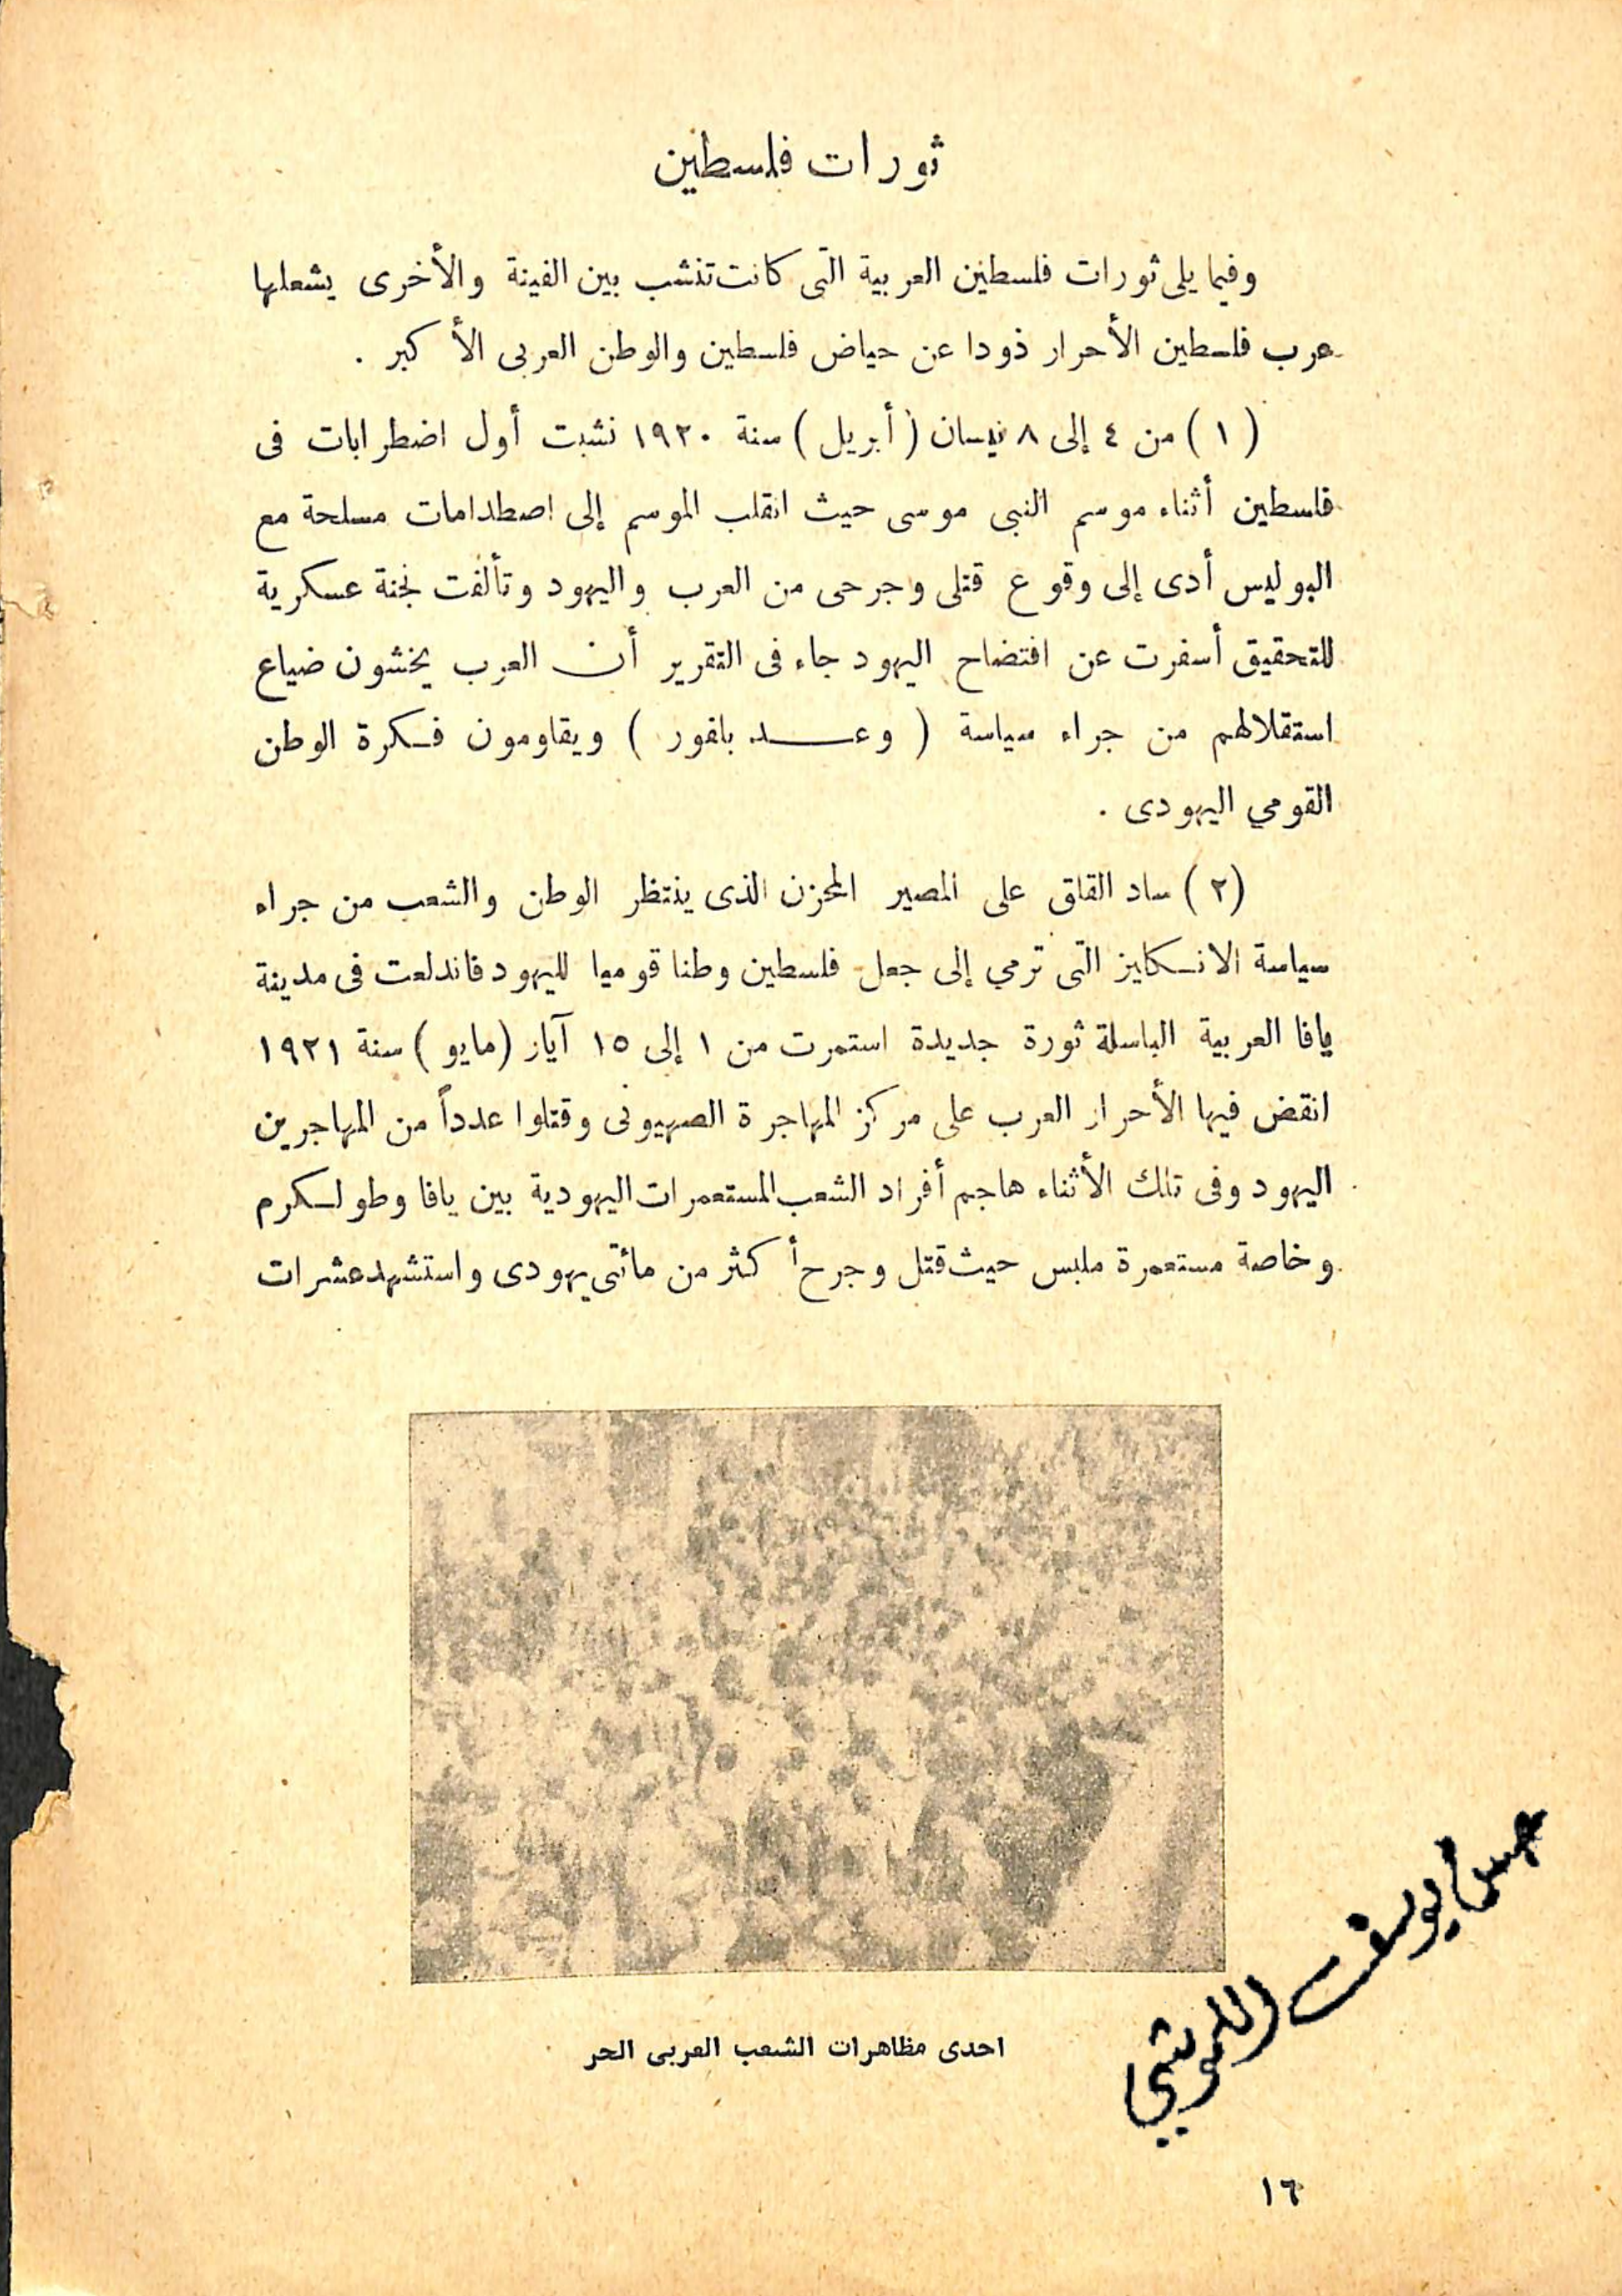 ثورات فلسطين
وفيما يلى ثورات فلسطين العربية التى كانت تنشب بين الفينة والأخرى يشعلها
عرب فلسطين الأحرار ذودا عن حياض فلسطين والوطن العربى الأكبر .
(١) من ٤ إلى ٨ نيسان (أبريل) سنة ١٩٢٠ نشبت أول اضطرابات فى
فلسطين أثناء موسم النبى موسى حيث انقلب الموسم إلى اصطدامات مسلحة مع
البوليس أدى إلى وقوع قتلى وجرحى من العرب واليهود وتألفت لجنة عسكرية
للتحقيق أسفرت عن افتضاح اليهود جاء فى التقرير أن العرب يخشون ضياع
استقلالهم من جراء سياسة ( وعـــد بلفور ) ويقاومون فكرة الوطن
القومي اليهودى .
(٢) ساد القلق على المصير المحزن الذى ينتظر الوطن والشعب من جراء
سياسة الانكليز التى ترمي إلى جعل فلسطين وطنا قوميا لليهود فاندلعت فى مدينة
يافا العربية الباسلة ثورة جديدة استمرت من ١ إلى ١٥ آيار (مايو) سنة ١٩٢١
انقض فيها الأحرار العرب على مركز المهاجرة الصهيونى وقتلوا عدداً من المهاجرين
اليهود وفى تلك الأثناء هاجم أفراد الشعب المستعمرات اليهودية بين يافا وطولكرم
وخاصة مستعمرة ملبس حيث قتل وجرح أكثر من مائتى يهودى واستشهد عشرات
احدى مظاهرات الشعب العربى الحر
يوسف
١٦